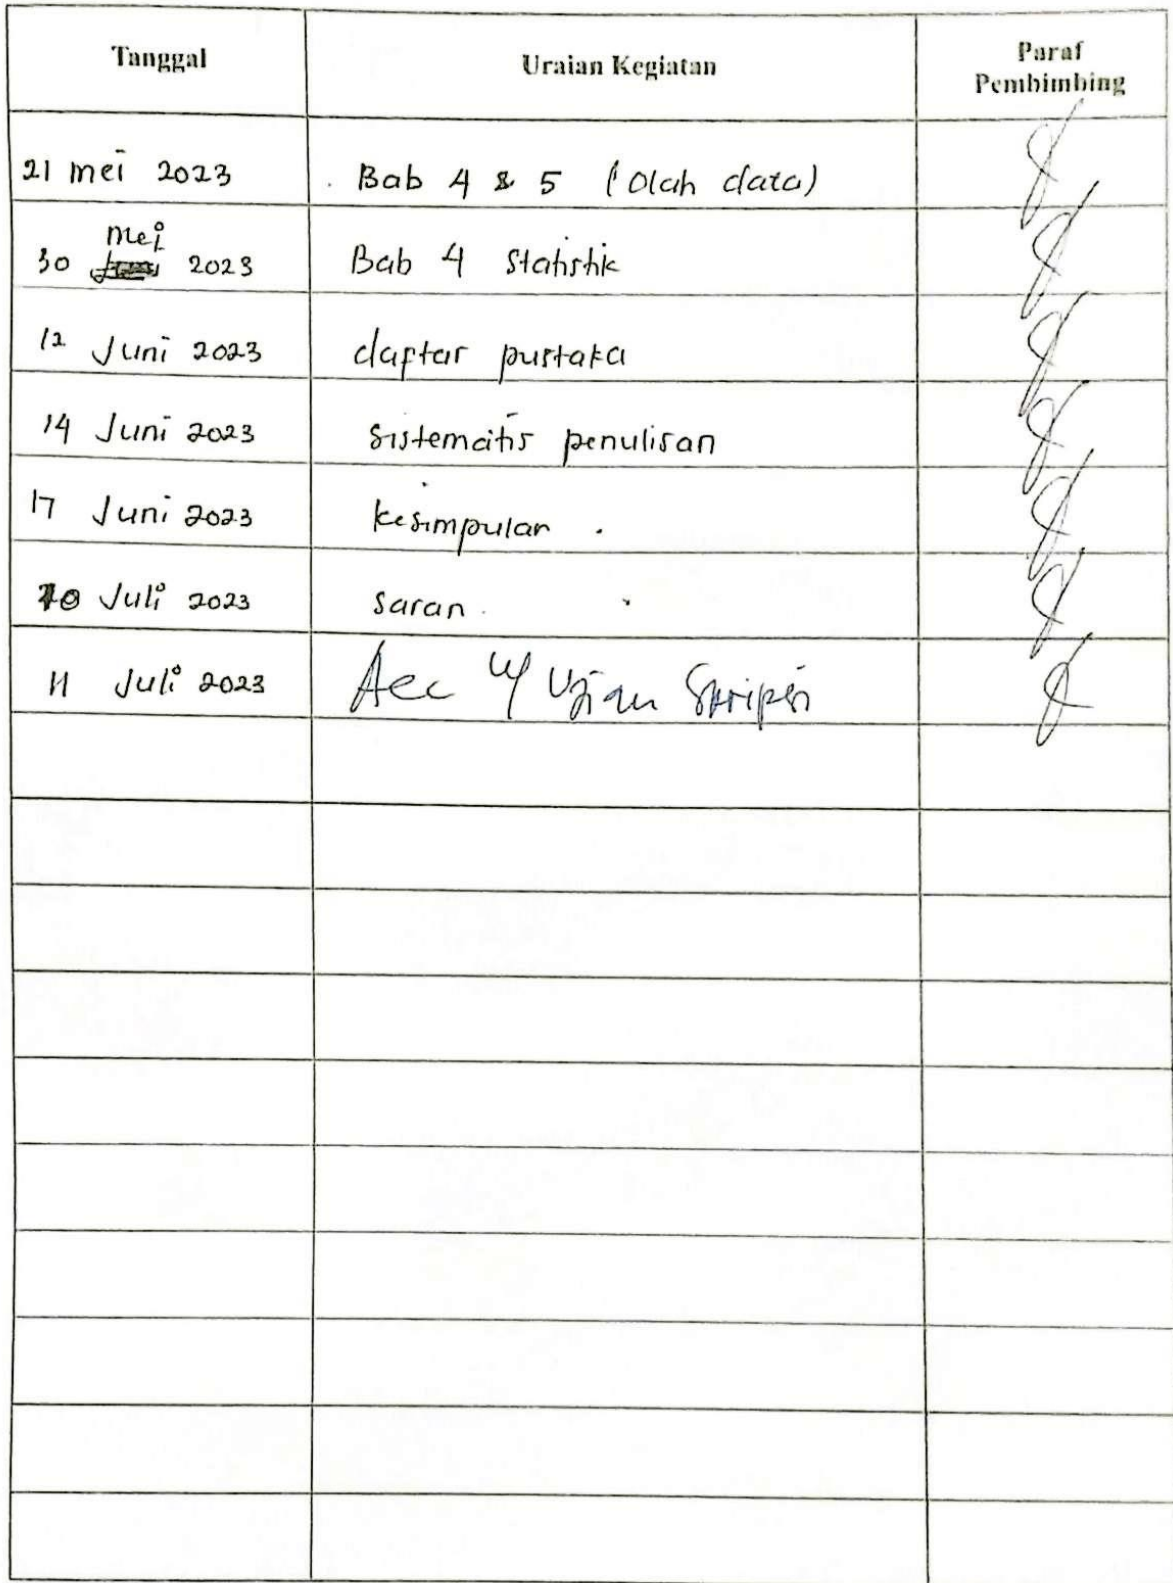 Tanggal
Uraian Kegiatan
Paraf
Pembimbing
21 mei 2023
Bab 4 & 5 (Olah data)
mei
30 2023
Bab 4 Statistik
12 Juni 2023
daftar pustaka
14 Juni 2023
Sistematis penulisan
17 Juni 2023
kesimpulan
10 Juli 2023
saran
11 Juli 2023
Acc u/ Ujian Skripsi